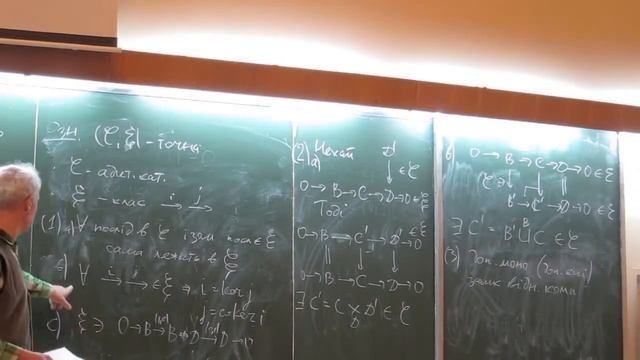 Озн. (C, ξ) - точна
C - адит. кат.
ξ - клас i→ j→
(1) a) ∀ послід в C ізом посл ∈ ξ
сама лежить в ξ
b) ∀ i→ j→ ∈ ξ ⇒ i = ker j
j = coker i
c) ξ ∋ 0→B→B⊕D→D→0
(2) Нехай D'
a) ↓ ∈ C
0→B→C→D→0 ∈ ξ
Тоді
0→B→C'→D'→0
0→B→C→D→0
∃ C' = C × D' ∈ C
D
b) 0→B→C→D→0 ∈ ξ
C ∋ ↓ ↓ ||
B'→C'→D→0
∃ C' = B' ⊔ C ∈ C
B
(3) Доп. моно (доп. епі)
замк відн. комп